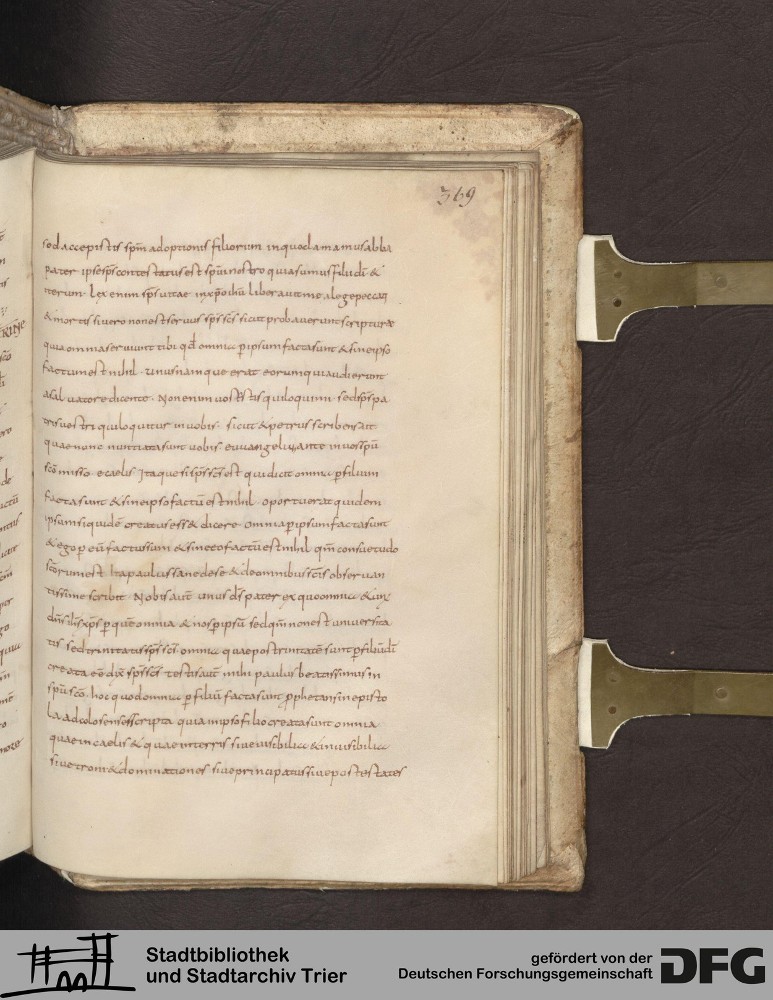 369
sed accepistis spm adoptionis filiorum in quo clamamus abba
pater ipse sps contestatus est spui nostro quia sumus filii di &
iterum lex enim sps vitae in xpo ihu liberavit me a lege peccati
& mortis si vero non est servus sps scs sicut probaverunt scripturae
quia omnia serviunt tibi qd omnia p ipsum facta sunt & sine ipso
factum est nihil · unus namque erat eorum qui audierunt
a salvatore dicente · Non enim vos estis qui loquimini sed sps pa
tris vestri qui loquitur in vobis · sicut & petrus scribens ait
quae nunc nuntiata sunt vobis · evvangelizante in vos spu
sco misso e caelis Itaque si sps scs est qui dicit omnia p filium
facta sunt & sine ipso factu est nihil · oportuerat quidem
ipsum siquide creatus ess& dicere · omnia p ipsum facta sunt
& ego p eu factus sum & sine eo factu est nihil qm consuetudo
scorum est Ita paulus sane de se & de omnibus scis observan
tissime scribit · Nobis aut unus ds pater ex quo omnia & un
dns ihs xps p que omnia & nos p ipsu sed qm non est universita
tis sed trinitatis sps scs omnia quae post trinitate sunt p filiu di
creata ee dix sps scs testis aut mihi paulus beatissimus in
spu sco · hoc quod omnia p filiu facta sunt pphetans in episto
la ad colosenses scripta quia in ipso filio creata sunt omnia
quae in caelis & quae in terris sive visibilia & invisibilia
sive troni & dominationes sive principatus sive postestates
Stadtbibliothek
und Stadtarchiv Trier
gefördert von der
Deutschen Forschungsgemeinschaft
DFG